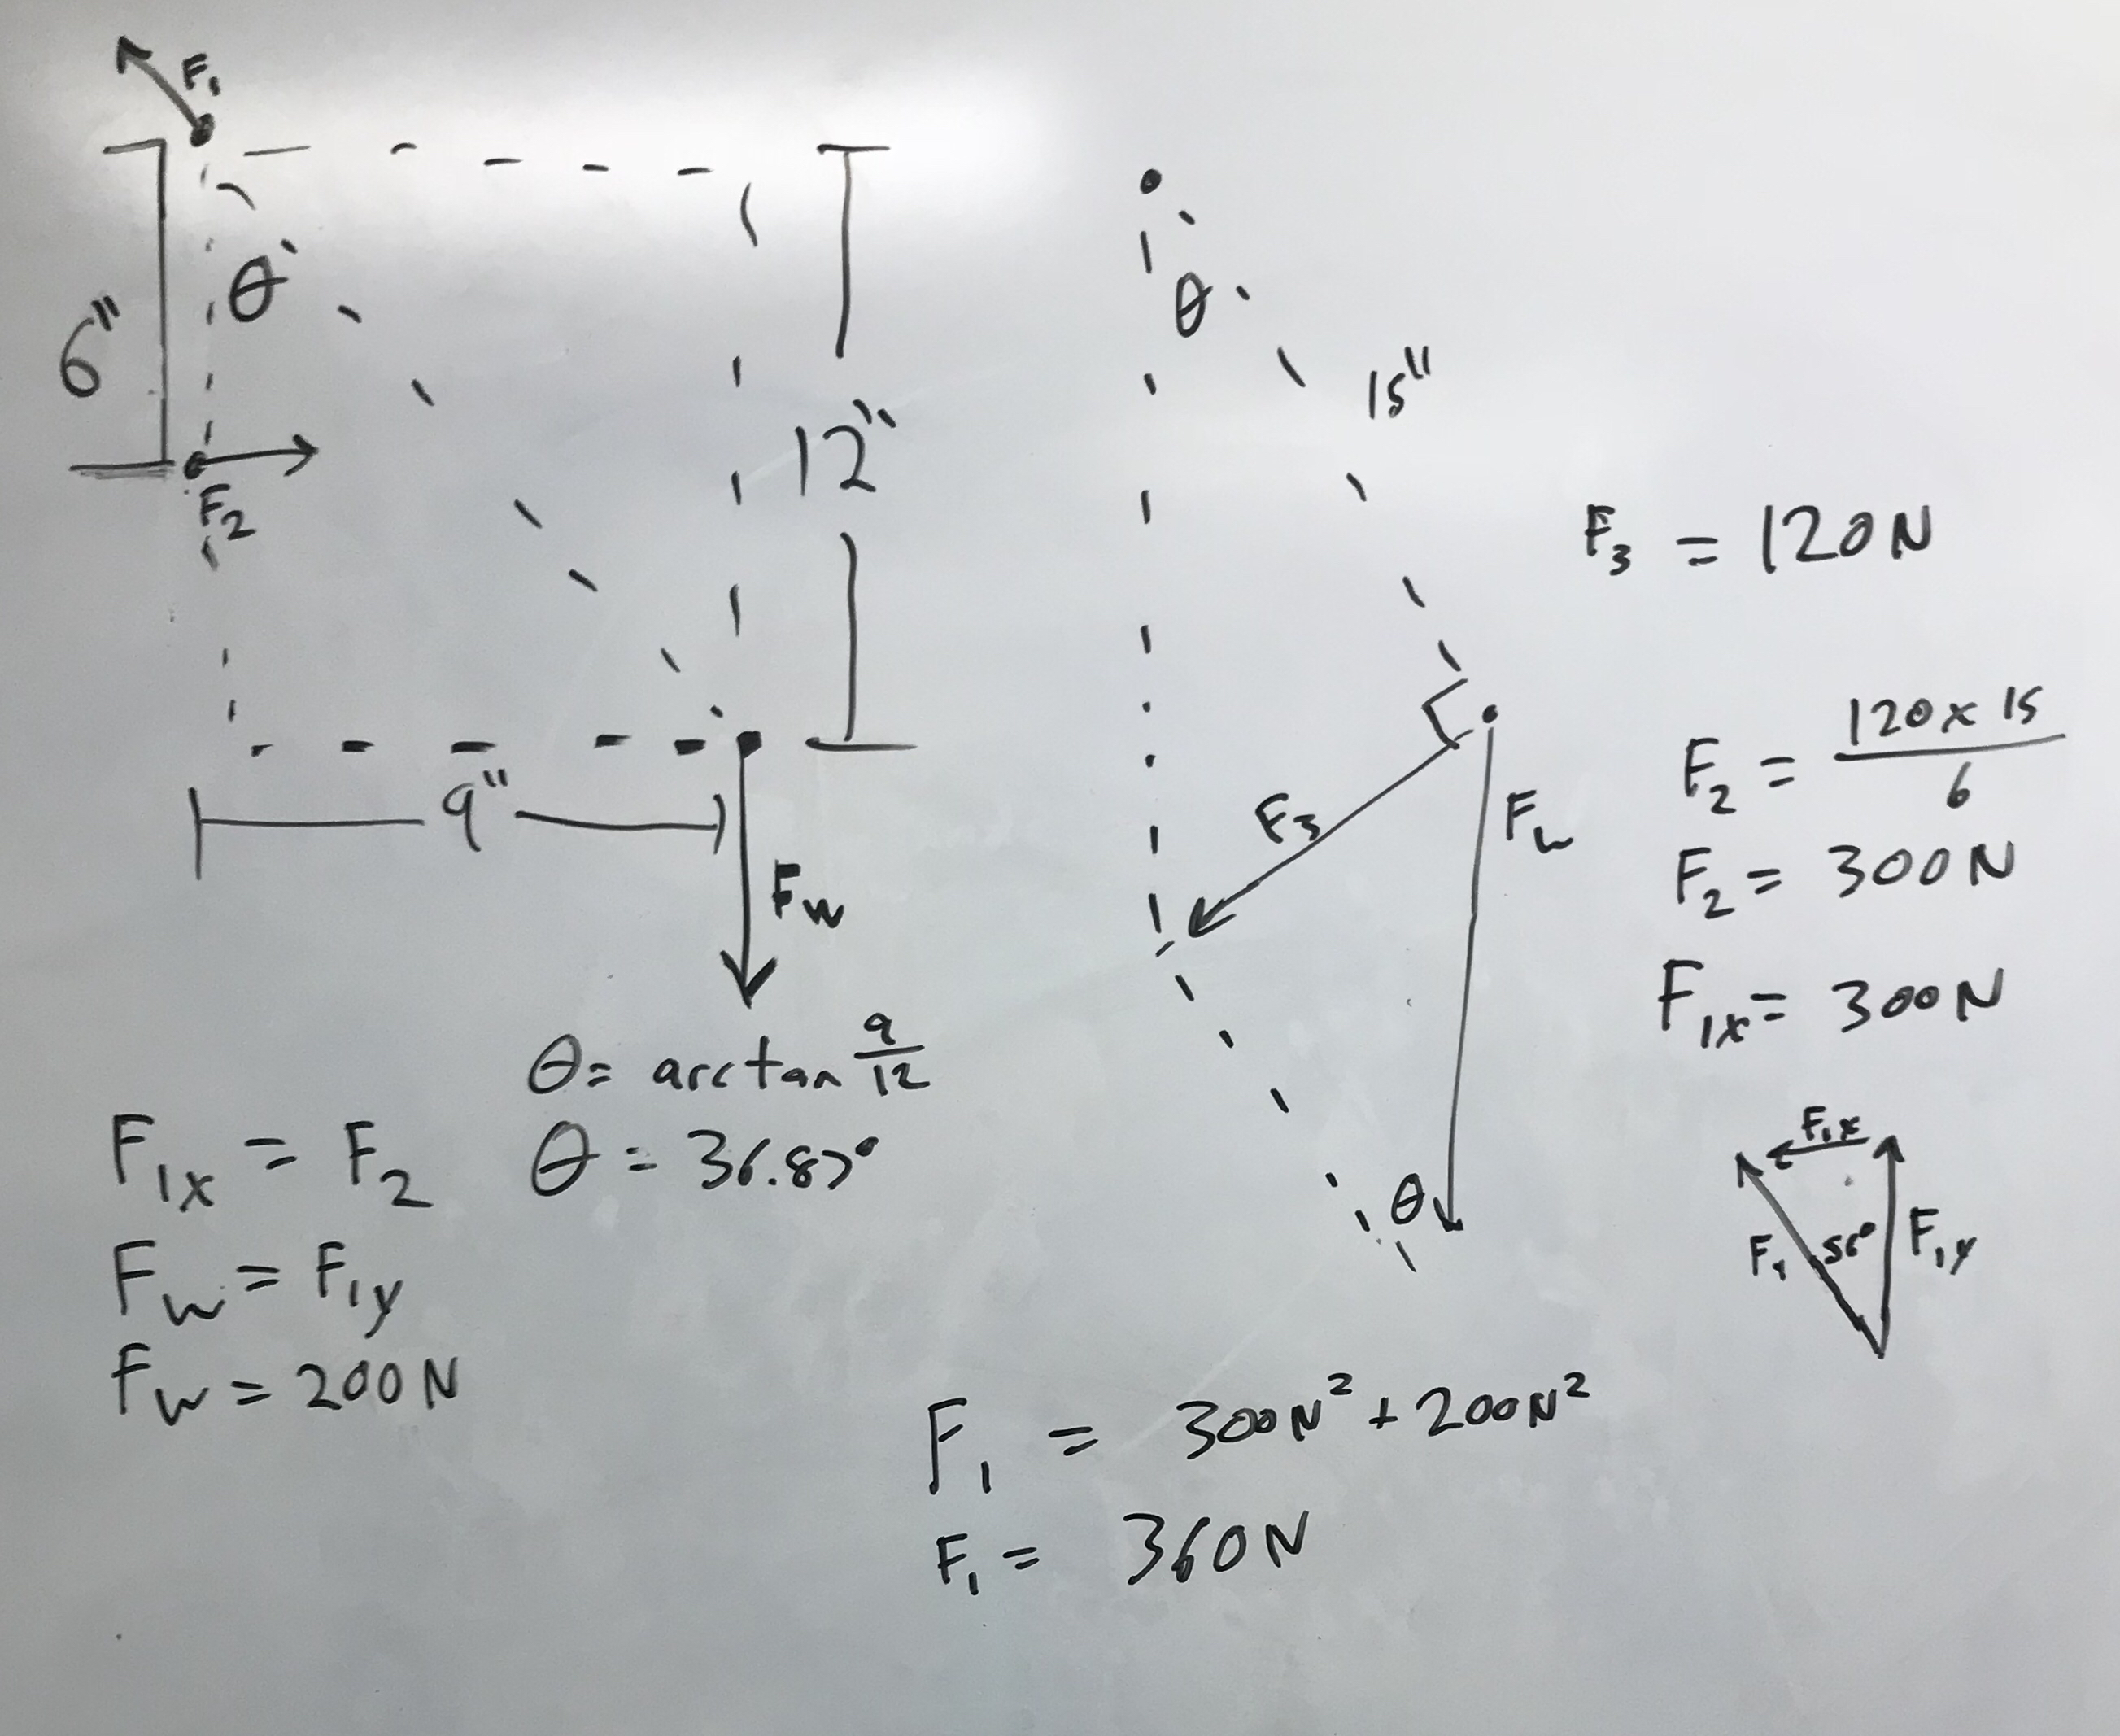 F₁
6"
θ
F₂
12"
9"
F_w
θ = arctan 9/12
θ = 36.87°
F₁ₓ = F₂
F_w = F₁y
F_w = 200N
θ
15"
F₃
F_w
θ
F₃ = 120N
F₂ = 120 x 15 / 6
F₂ = 300N
F₁ₓ = 300N
F₁ₓ
F₁
56°
F₁y
F₁ = 300N² + 200N²
F₁ = 360N